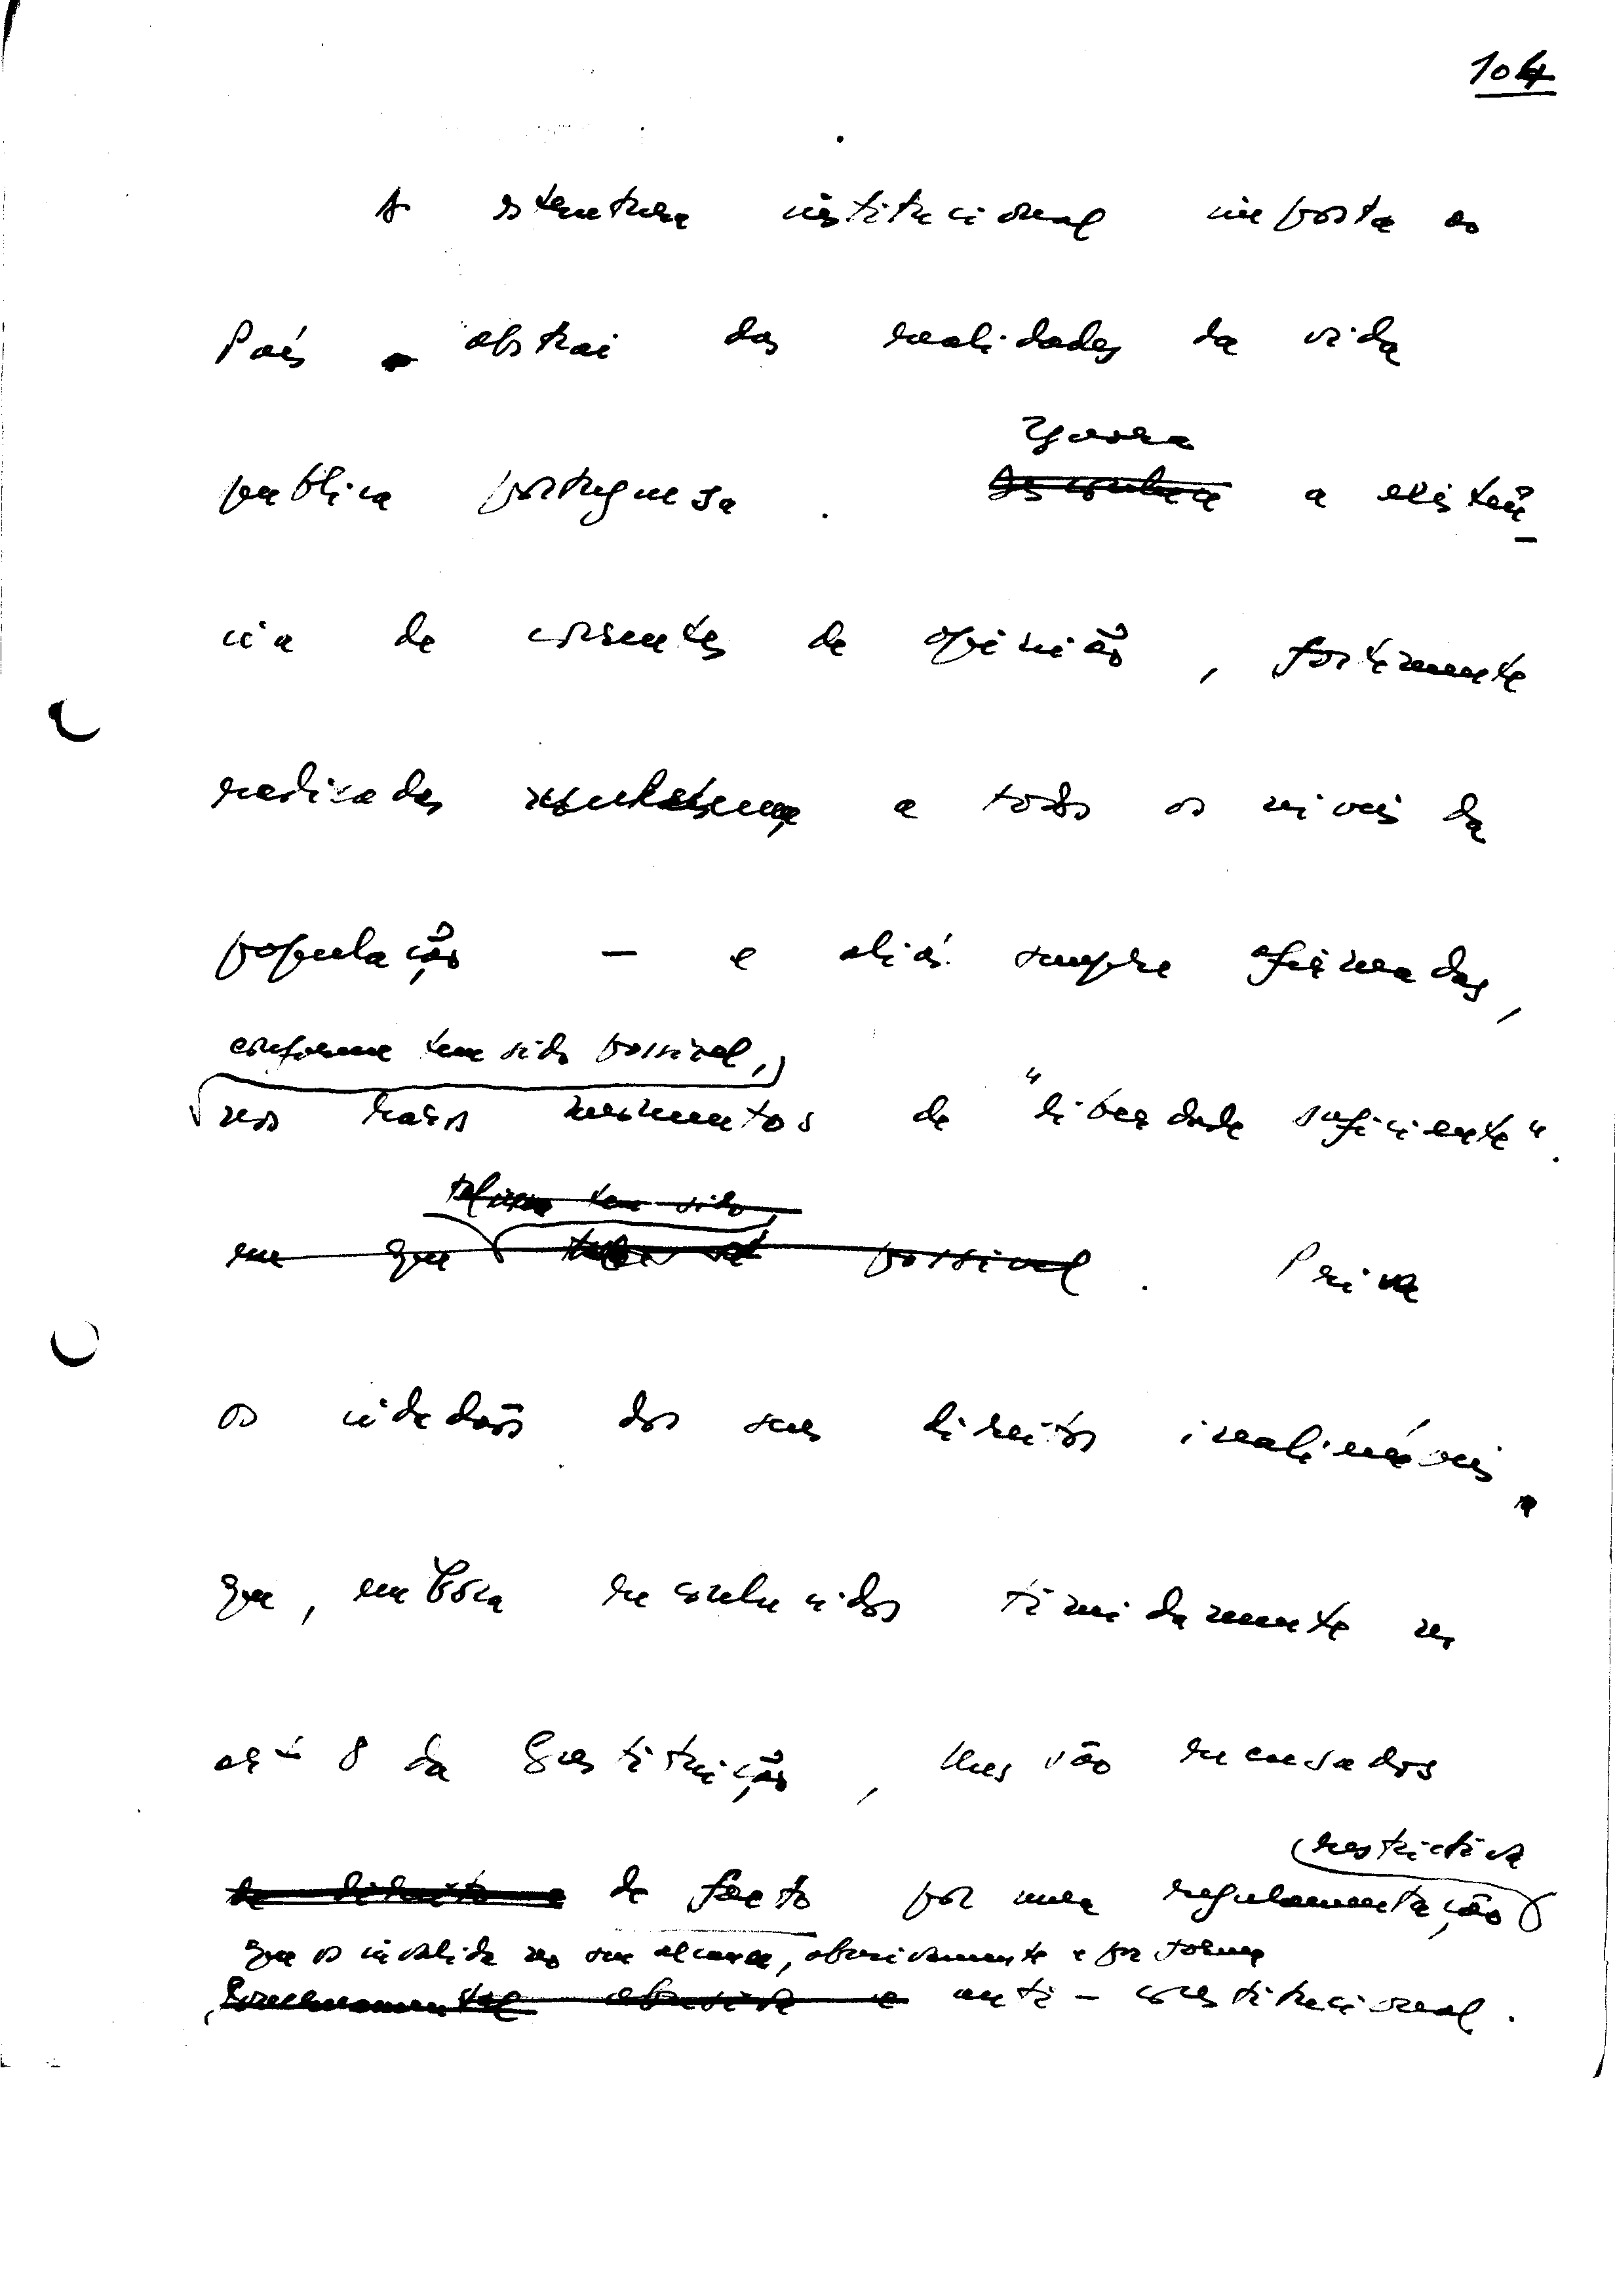 104
A estrutura institucional imposta ao
País abstrai das realidades da vida
Ignora
pública portuguesa . Desconhece a existên
cia de correntes de opinião , fortemente
radicadas a todos os níveis da
população — e aliás sempre afirmadas,
conforme tem sido possível,
nos raros momentos de "liberdade suficiente".
tem sido
em que possível . Priva
os cidadãos dos seus direitos inalienáveis
que , embora reconhecidos timidamente no
artº 8 da Constituição , lhes são recusados
restritiva
de direito e de facto por uma regulamentação
que os invalida no seu alcance, abusivamente e por forma
abusiva e anti - constitucional .